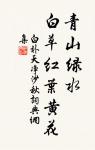 青山绿水
白草红叶黄花
白朴天净沙秋词典网
集